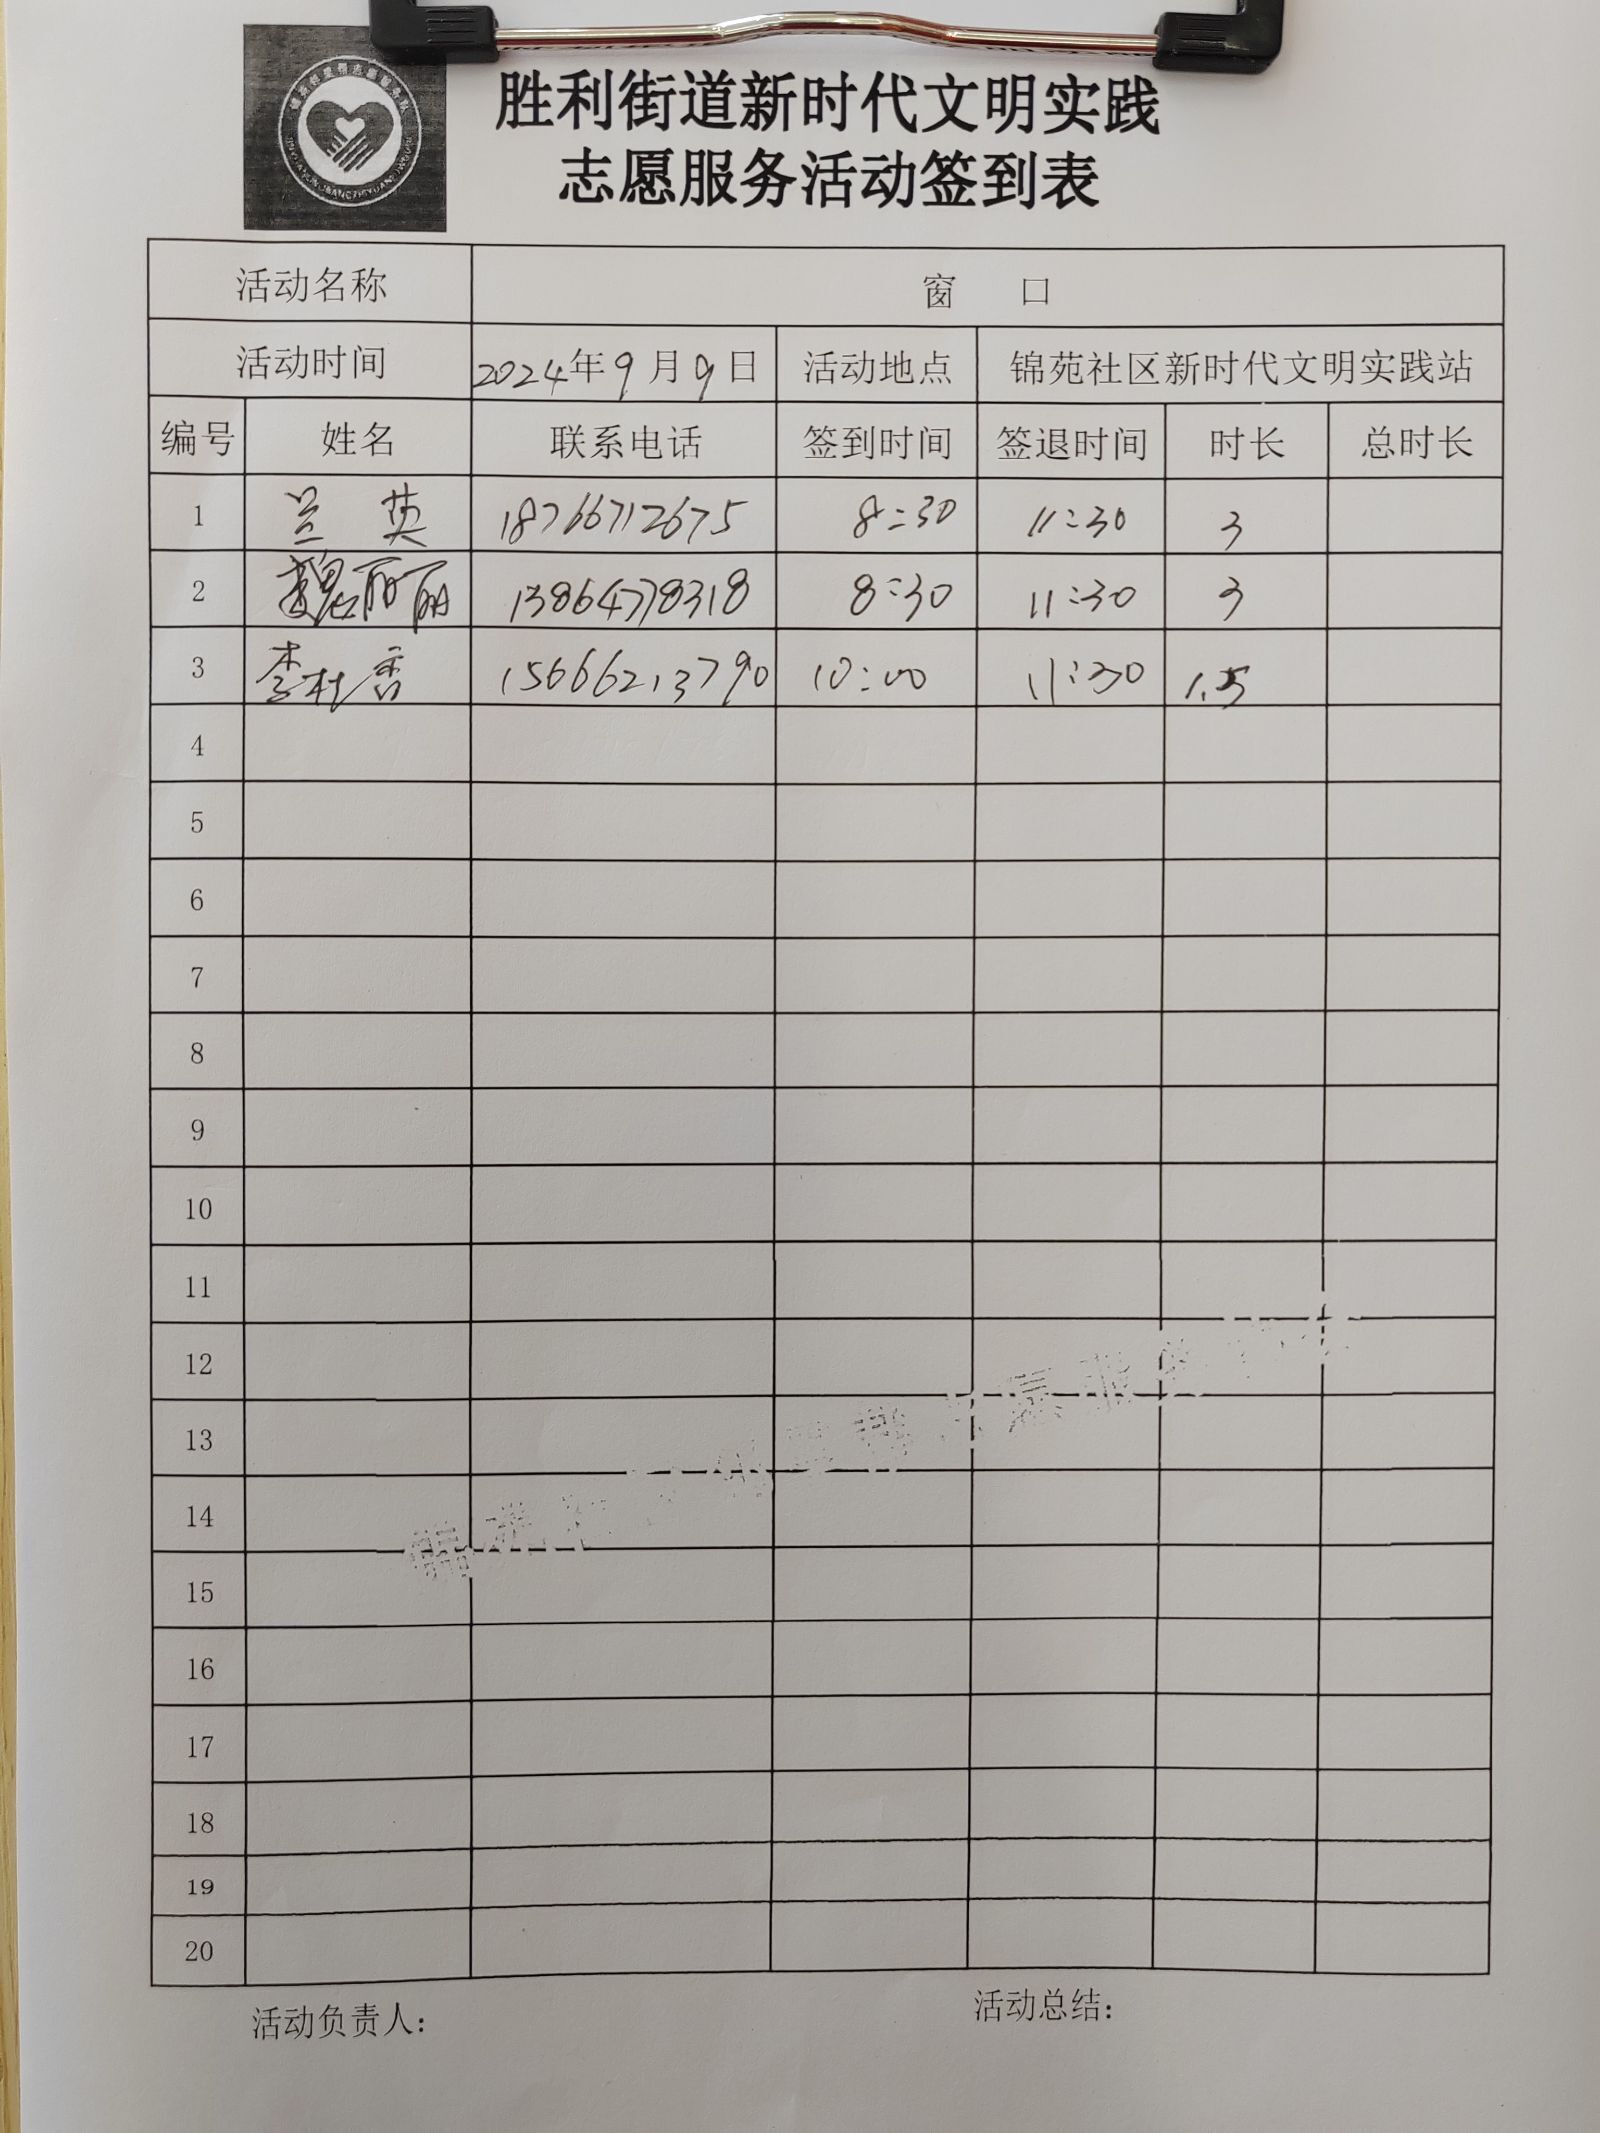 胜利街道新时代文明实践
志愿服务活动签到表
活动名称 窗 口
活动时间 2024年9月9日 活动地点 锦苑社区新时代文明实践站
编号 姓名 联系电话 签到时间 签退时间 时长 总时长
1 兰 英 18766712675 8:30 11:30 3
2 魏丽丽 13864778318 8:30 11:30 3
3 李杜香 15666213790 10:00 11:30 1.5
4
5
6
7
8
9
10
11
12
13
14
15
16
17
18
19
20
活动负责人: 活动总结: